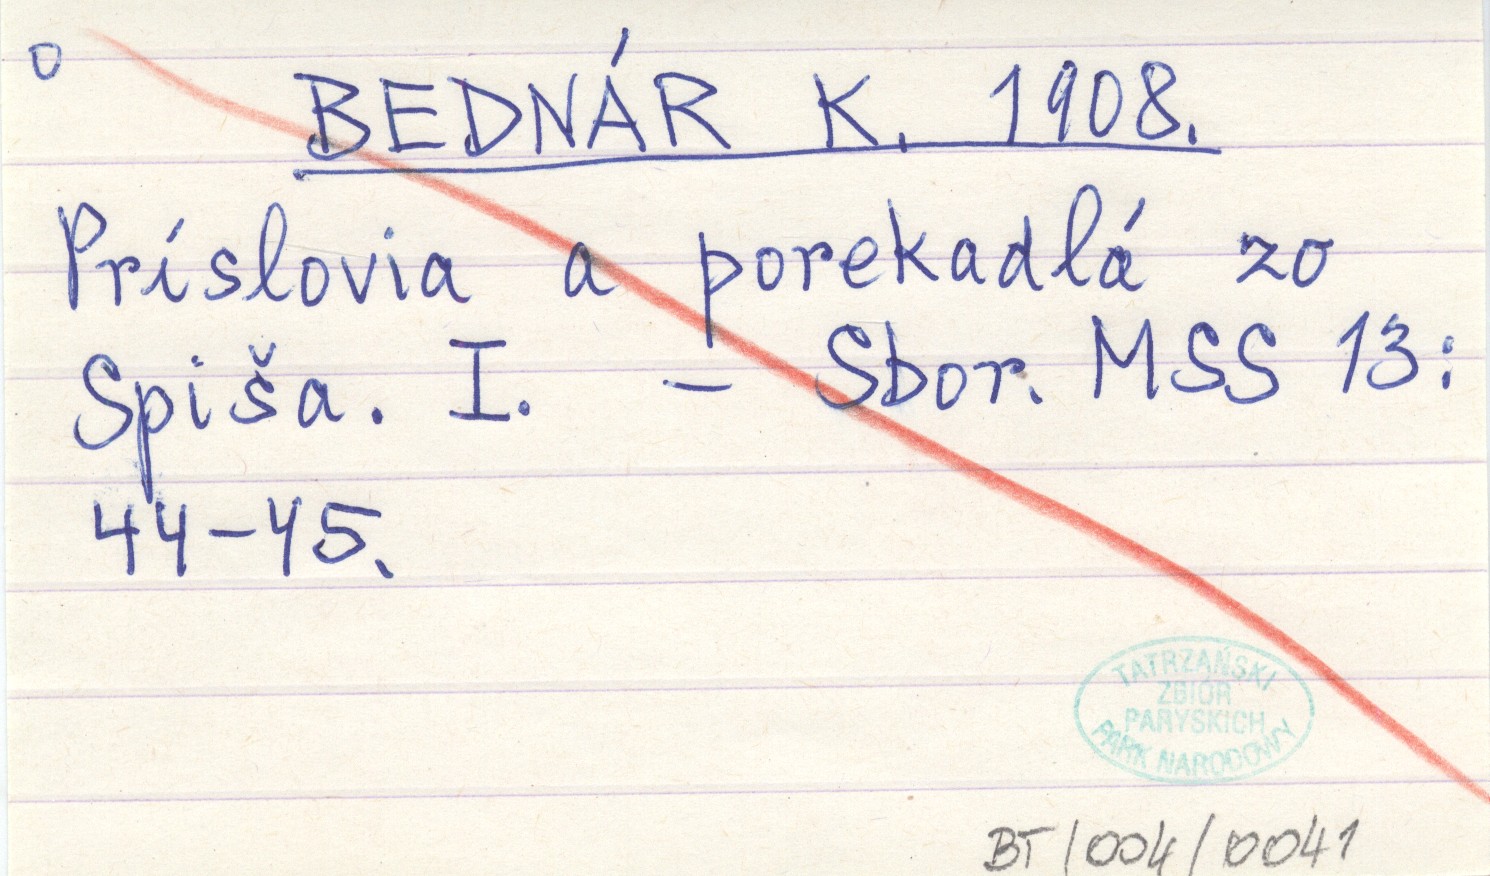 o
BEDNÁR K. 1908.
Príslovia a porekadlá zo
Spiša. I. – Sbor. MSS 13:
44–45.
TATRZAŃSKI
ZBIÓR
PARYSKICH
PARK NARODOWY
BT/004/0041